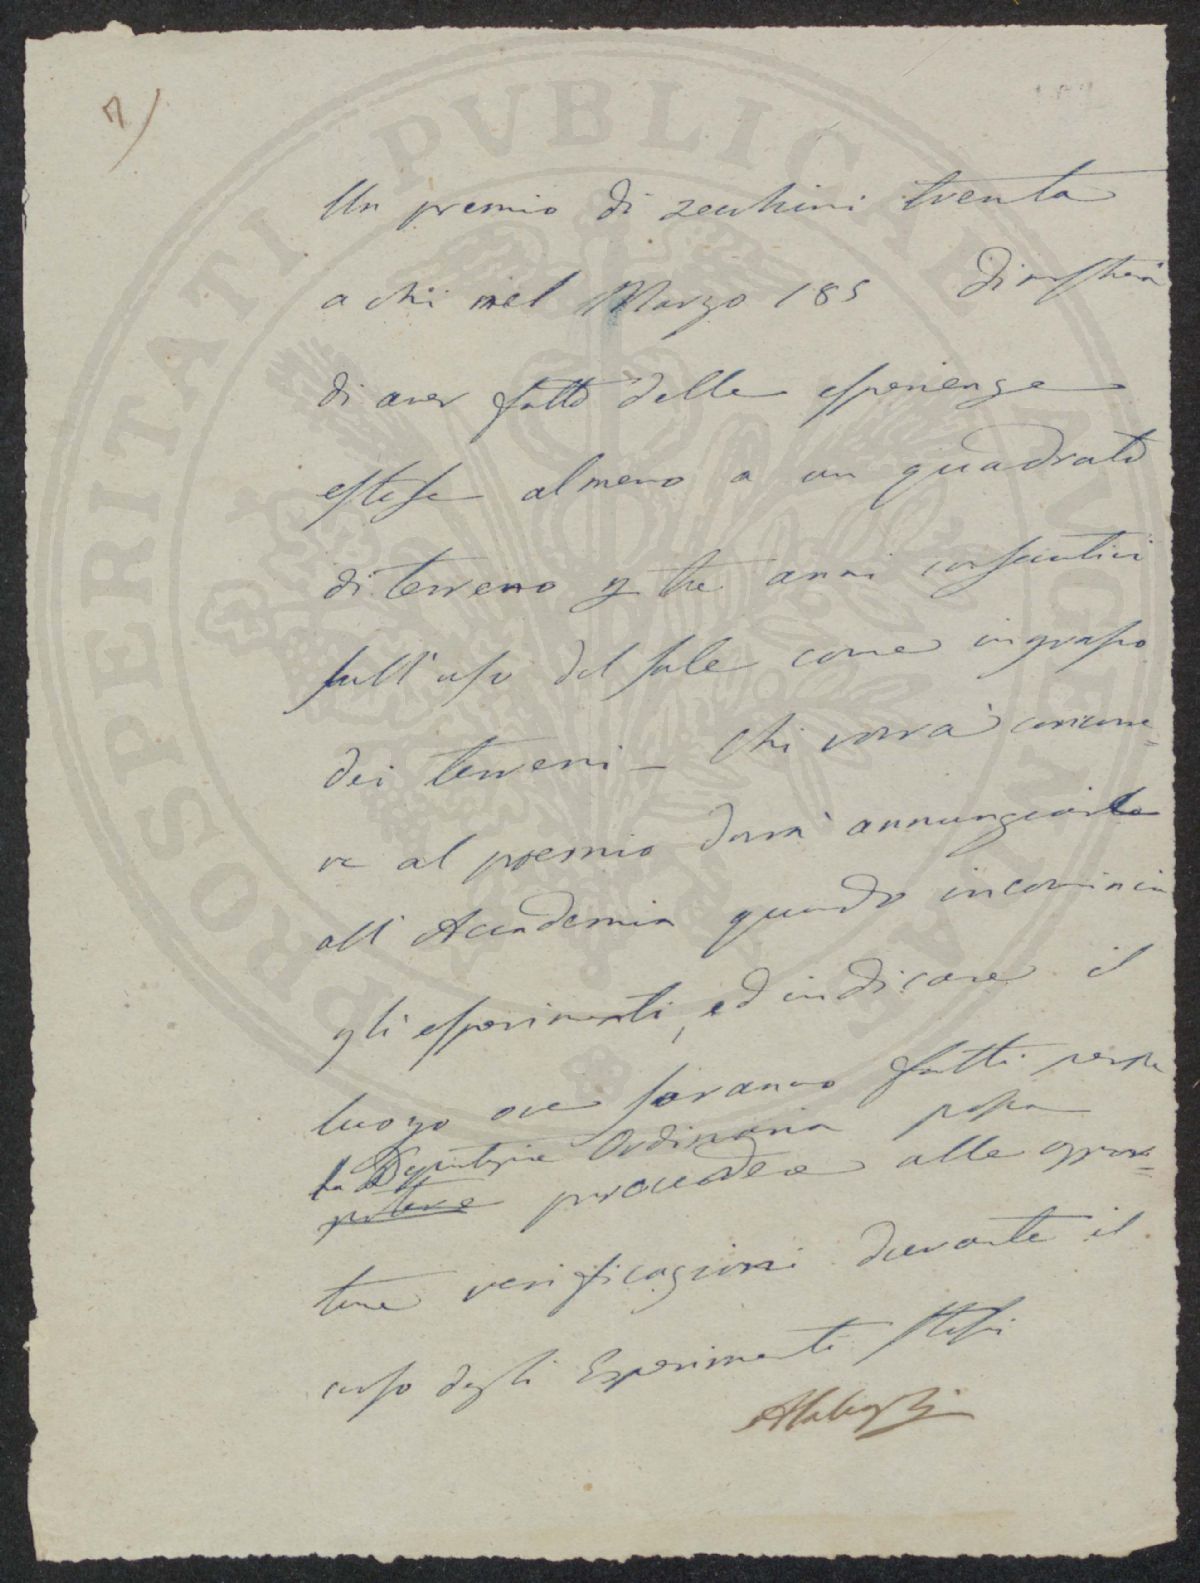 7)
Un premio di zecchini trenta
a chi nel Marzo 185 dimostrerà
di aver fatto delle esperienze
estese almeno a un quadrato
di terreno p tre anni consecutivi
sull'uso del sale come ingrasso
dei terreni – Chi vorrà concorre=
re al premio dovrà annunziarlo
all'Accademia quando incomincia
gli esperimenti, ed indicare il
luogo ove saranno fatti perche
la Deputazione Ordinaria possa
potere procedere alle oppor=
tune verificazioni durante il
corso degli Esperimenti stessi
PROSPERITATI PVBLICAE AVGENDAE